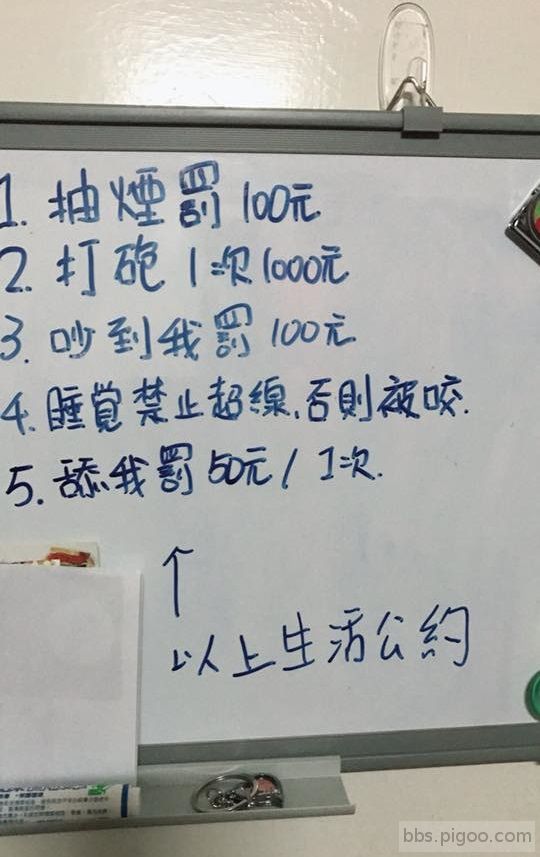 1. 抽煙罰100元
2. 打砲1次1000元
3. 吵到我罰100元
4. 睡覺禁止超線,否則被咬.
5. 舔我罰50元/1次.
↑
以上生活公約
bbs.pigoo.com